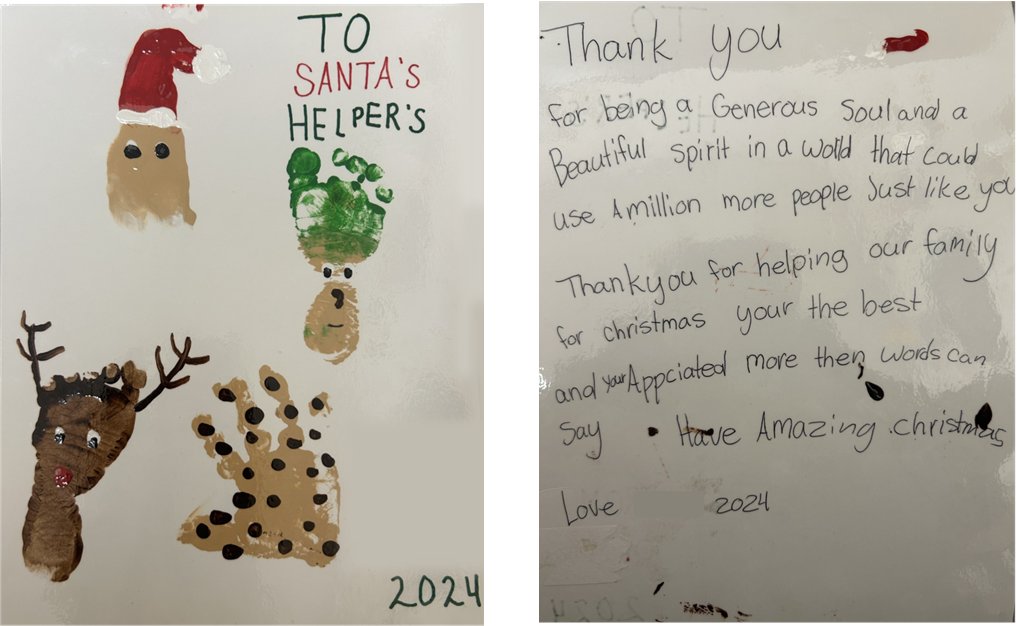 TO
SANTA'S
HELPER'S
2024
Thank you
for being a Generous Soul and a
Beautiful spirit in a world that could
use A million more people Just like you
Thankyou for helping our family
for christmas your the best
and your Appciated more then words can
Say Have Amazing christmas
Love 2024